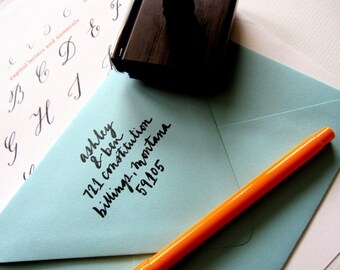 capital letters and numerals
C
G H I
ashley
& ben
721 constitution
billings, montana
59105